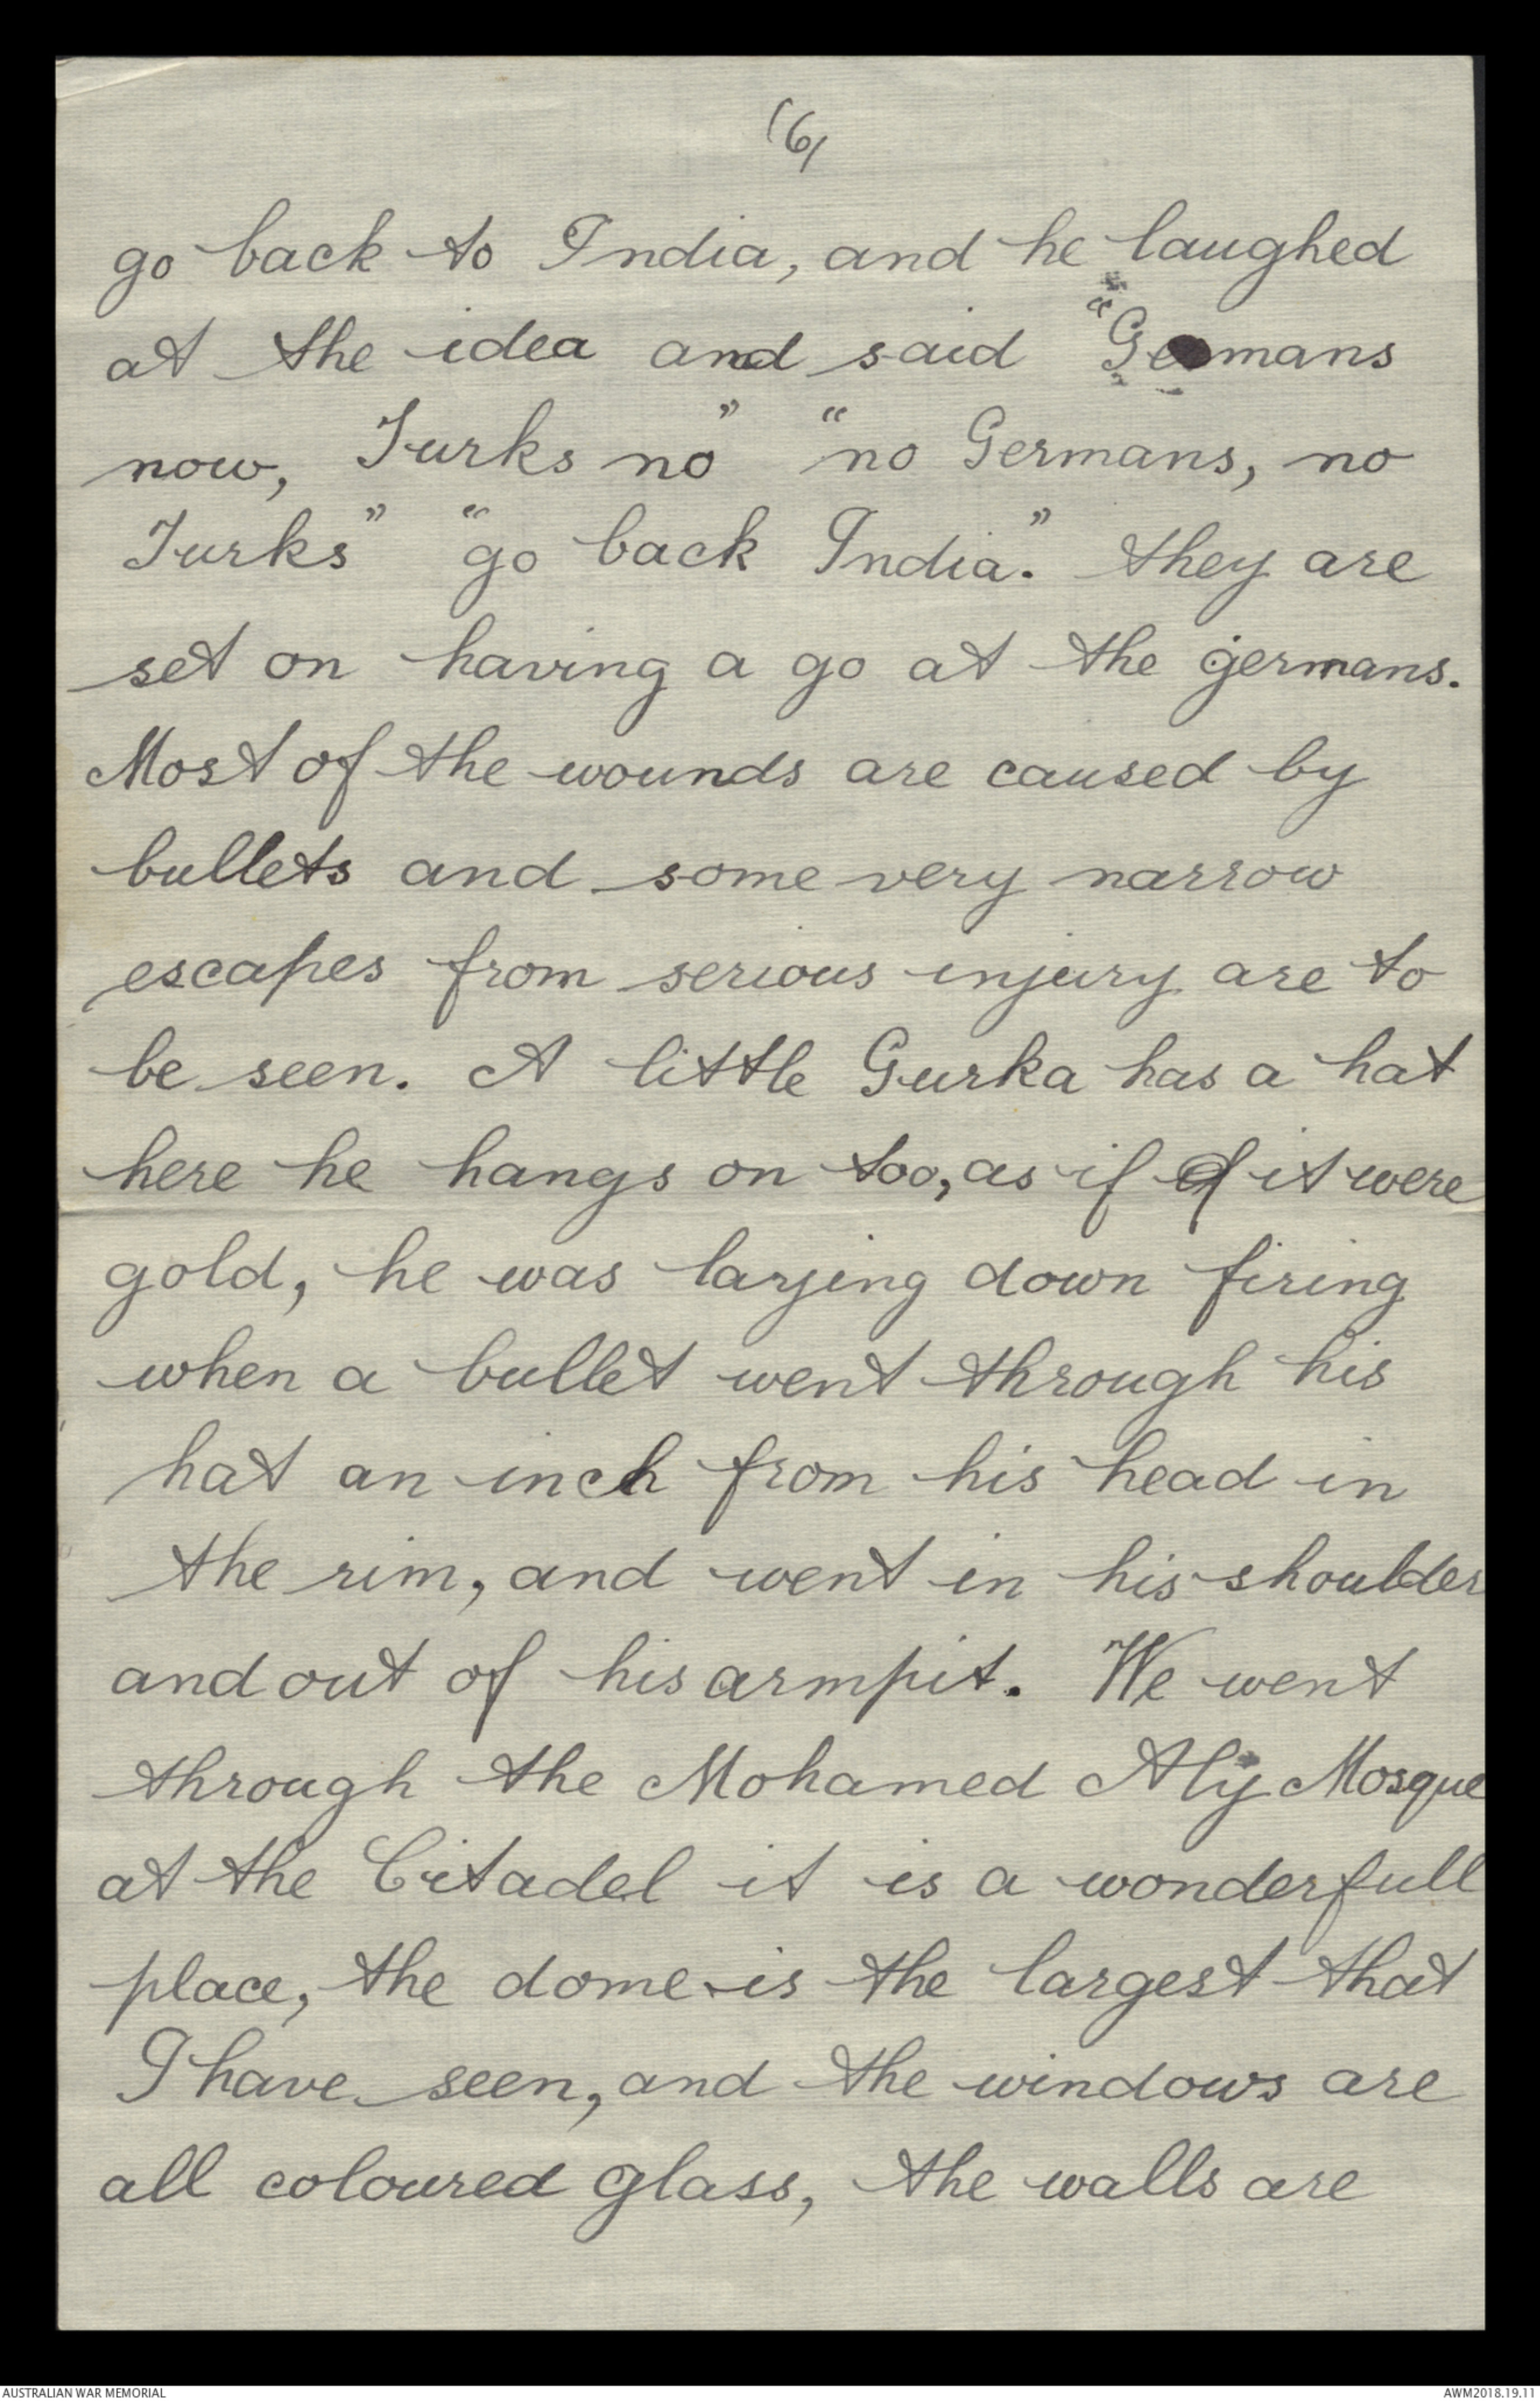 (6)
go back to India, and he laughed
at the idea and said "Germans
now, Turks no" "no Germans, no
Turks" "go back India." they are
set on having a go at the germans.
Most of the wounds are caused by
bullets and some very narrow
escapes from serious injury are to
be seen. A little Gurka has a hat
here he hangs on too, as if it were
gold, he was laying down firing
when a bullet went through his
hat an inch from his head in
the rim, and went in his shoulder
and out of his armpit. We went
through the Mohamed Aly Mosque
at the Citadel it is a wonderfull
place, the dome is the largest that
I have seen, and the windows are
all coloured glass, the walls are
AUSTRALIAN WAR MEMORIAL AWM2018.19.11